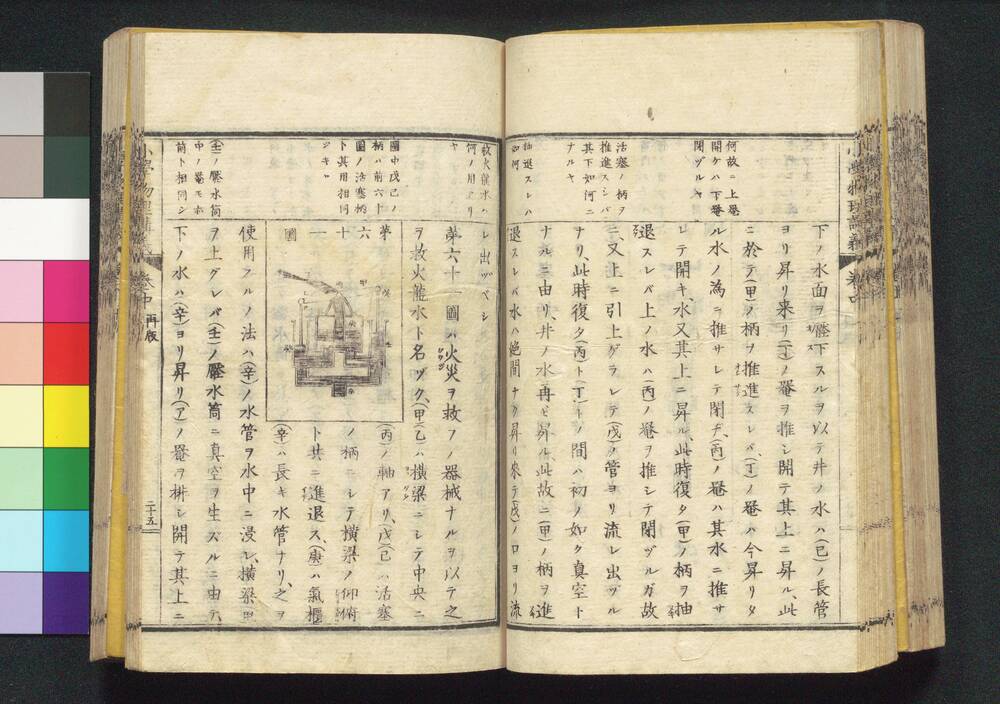 何故ニ上罨
開ケハ下罨
閉ヅルヤ
活塞ノ柄ヲ
推進スシバ
其下如何ニ
ナルヤ
抽退スレハ
如何
下ノ水面ヲ壓下スルヲ以テ井ノ水ハ(己)ノ長管
ヨリ昇リ来リ(丁)ノ罨ヲ推シ開テ其上ニ昇ル、此
ニ於テ(甲)ノ柄ヲ推進スレバ、(丁)ノ罨ハ今昇リタ
ル水ノ為ニ推サレテ閉ヂ、(丙)ノ罨ハ其水ニ推サ
レテ開キ、水又其上ニ昇ル、此時復タ(甲)ノ柄ヲ抽
退スレバ上ノ水ハ(丙)ノ罨ヲ推シテ閉ヅルガ故
ニ、又上ニ引上ゲラレテ(戊)ノ管ヨリ流レ出ヅル
ナリ、此時復タ(丙)ト(丁)トノ間ハ初ノ如ク真空ト
ナルニ由リ、井ノ水再ビ昇ル、此故ニ(甲)ノ柄ヲ進
退スレバ水ハ絶間ナク昇リ来テ(戊)ノ口ヨリ流
救火龍水ハ
何ノ用ナリ
ヤ
圖中戊己ノ
柄ハ前六十
圖ノ活塞柄
ト其用相同
ジキヤ
(壬)ノ壓水筒
中ノ罨モ亦
前ト相同シ
レ出ヅベシ
第六十一圖ハ火災ヲ救フノ器械ナルヲ以テ之
ヲ救火龍水ト名ヅク、(甲)(乙)ハ横梁ニシテ中央ニ
第六十一圖
(丙)ノ軸アリ、(戊)(己)ハ活塞
ノ柄ニシテ横梁ノ仰俯
ト共ニ進退ス、(庚)ハ氣櫃
(辛)ハ長キ水管ナリ、之ヲ
使用スルノ法ハ(辛)ノ水管ヲ水中ニ浸シ、横梁
ヲ上グレバ(壬)ノ壓水筒ニ真空ヲ生ズルニ由テ、
下ノ水ハ(辛)ヨリ昇リ(ア)ノ罨ヲ排シ開テ其上ニ
卷中
再版
二十五